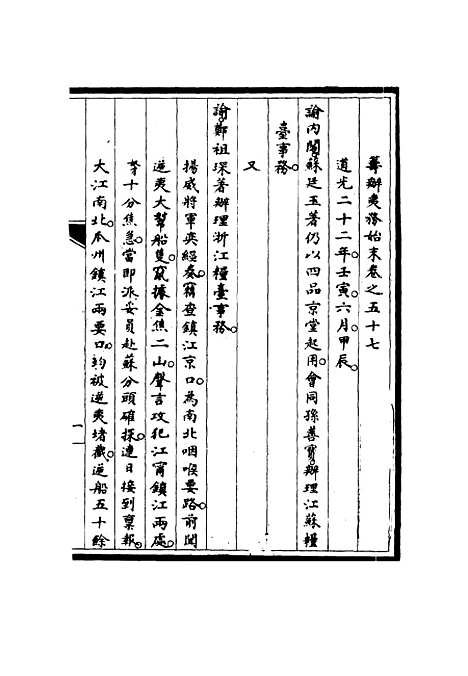 籌辦夷務始末卷之五十七
道光二十二年。壬寅六月。甲辰。
諭內閣蘇廷玉著仍以四品京堂起用。會同孫善寶。辦理江蘇糧
臺事務。
又
諭。鄭祖琛著辦理浙江糧臺事務。
揚威將軍奕經奏。竊查鎮江京口。為南北咽喉要路。前聞
逆夷大幫船隻。竄據金焦二山。聲言攻犯江甯鎮江兩處。
等十分焦急。當即派妥員赴蘇分頭確探。連日接到稟報。
大江南北。瓜州鎮江兩要口。均被逆夷堵截。逆船五十餘
一